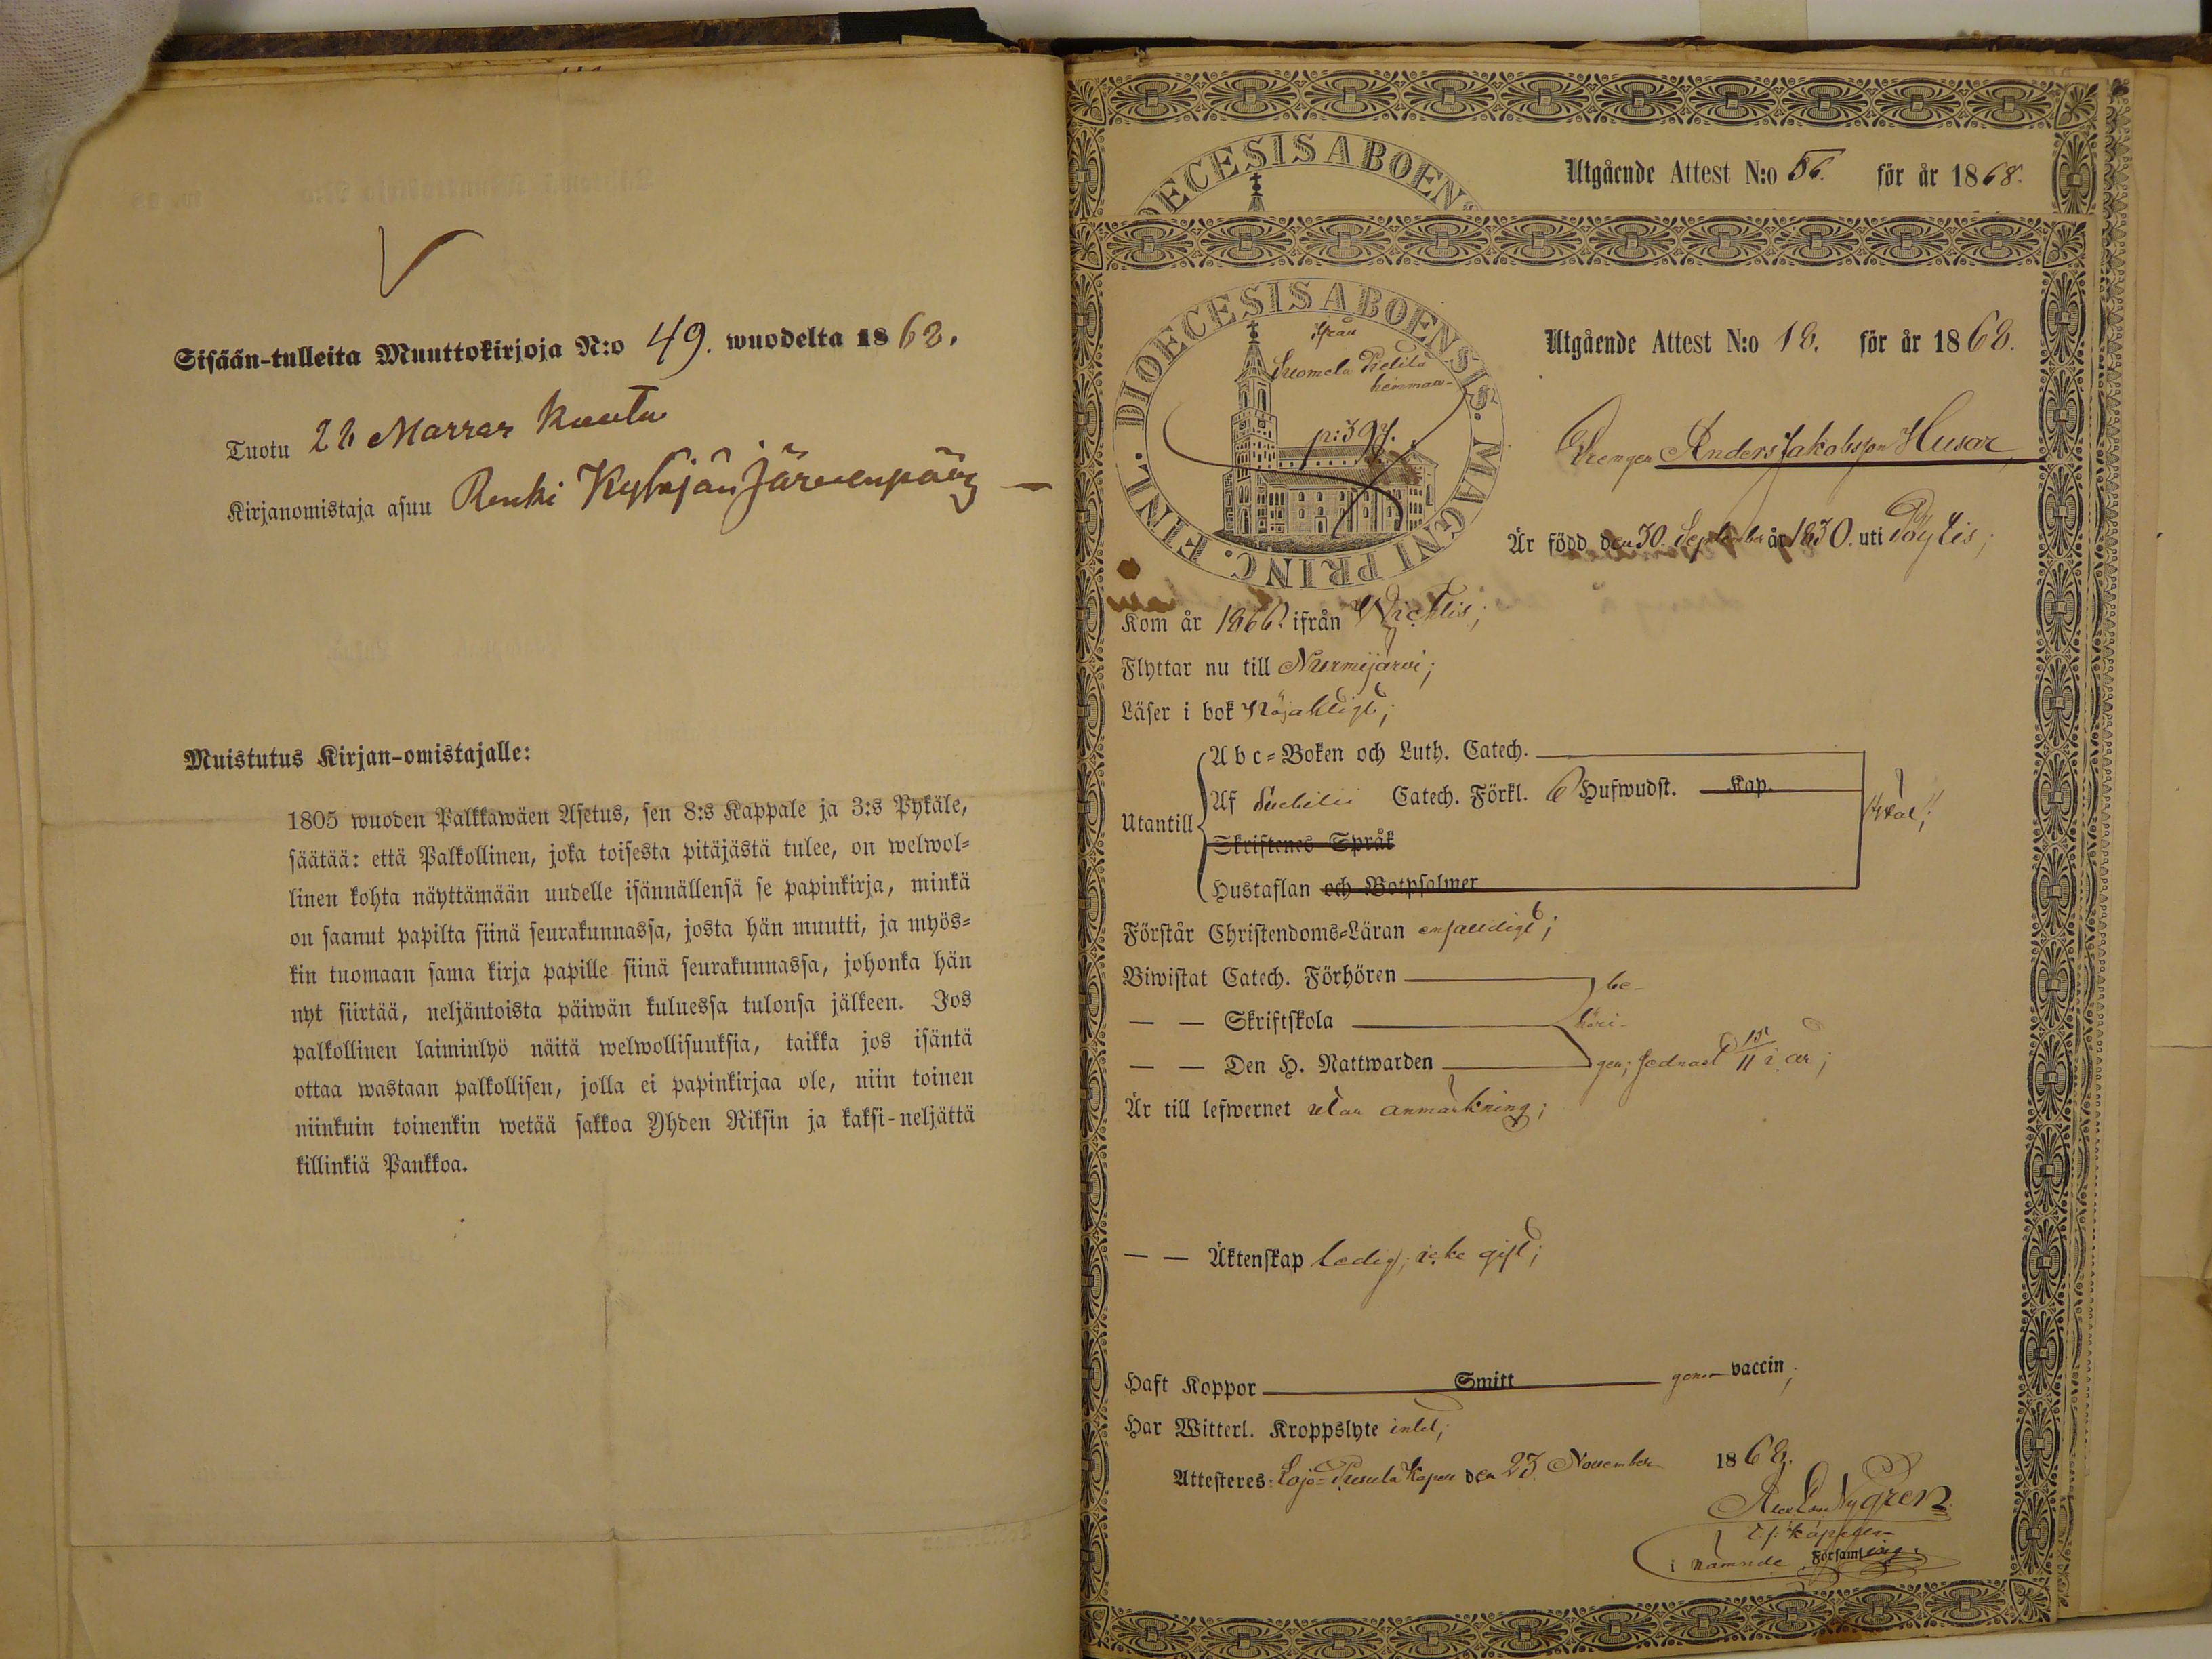 Sisään-tulleita Muuttokirjoja N:o 49. wuodelta 1868.
Tuotu 26 Marras Kuuta
Kirjanomistaja asuu Renki Kytäjän Järvenpään
Muistutus Kirjan-omistajalle:
1805 wuoden Palkkawäen Asetus, sen 8:s Kappale ja 3:s Pykäle,
säätää: että Palkollinen, joka toisesta pitäjästä tulee, on welwol-
linen kohta näyttämään uudelle isännällensä se papinkirja, minkä
on saanut papilta siinä seurakunnassa, josta hän muutti, ja myös-
kin tuomaan sama kirja papille siinä seurakunnassa, johonka hän
nyt siirtää, neljäntoista päiwän kuluessa tulonsa jälkeen. Jos
palkollinen laiminlyö näitä welwollisuuksia, taikka jos isäntä
ottaa wastaan palkollisen, jolla ei papinkirjaa ole, niin toinen
niinkuin toinenkin wetää sakkoa Yhden Riksin ja kaksi-neljättä
killinkiä Pankkoa.
DIOECESIS ABOENS
Utgående Attest N:o 56. för år 1868.
DIOECESIS ABOENSIS. MAGNI PRINC. FINL.
ifrån
Suomela Pietilä
hemman
p: 397.
Utgående Attest N:o 18. för år 1868.
Drengen Anders Jakobsson Husar
Är född den 30. September år 1830. uti Pöytis;
Kom år 1866. ifrån Wichtis;
Flyttar nu till Nurmijärvi;
Läser i bok nöjaktigt;
Utantill
Abc=Boken och Luth. Catech.
Af Svebilii Catech. Förkl. 6 Hufwudst. Kap.
Skriftenes Språk
Hustaflan och Botpsalmer
Förstår Christendoms=Läran enfaldigt;
Biwistat Catech. Förhören be-
— — Skriftskola höri-
— — Den H. Nattwarden gen; sednast 15/11 i. år;
Är till lefwernet utan anmärkning;
— — Äktenskap ledig; icke gift;
Haft Koppor Smitt genom vaccin;
Har Witterl. Kroppslyte intet;
Attesteres: Lojo- Pusula Kapell den 23 November 1868.
Nygren
t.f. Kapellan
i nämnde Församling.